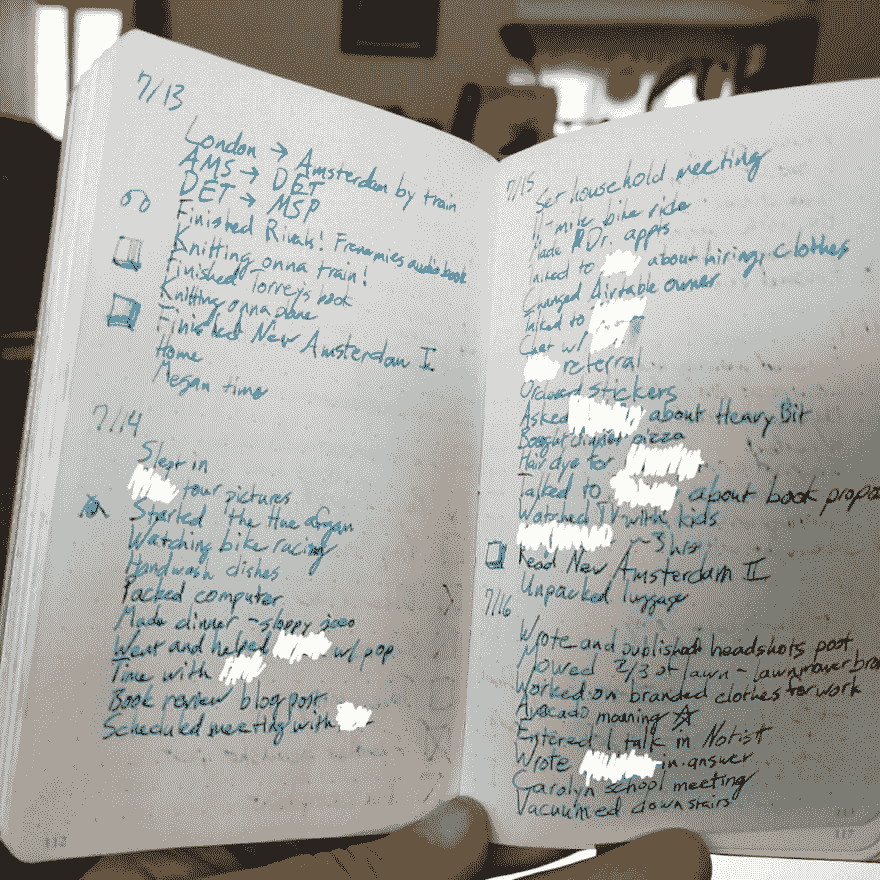 7/13
London → Amsterdam by train
AMS → DET
DET → MSP
Finished Rivals! Frenemies audiobook
Knitting onna train!
Finished Torrey's book
Knitting onna plane
Finished New Amsterdam I
Home
Megan time
7/14
Slept in
tour pictures
Started the Hue Afgan
Watching bike racing
Handwash dishes
Packed computer
Made dinner - sloppy joes
Went and helped w/ pop
Time with
Book review blog post
Scheduled meeting with
112
7/15
Set household meeting
11-mile bike ride
Made Dr. appts
Talked to about hiring, clothes
Changed Airtable owner
Talked to
Chat w/
referral
Ordered stickers
Asked about Heavy Bit
Bought dinner pizza
Hair dye for
Talked to about book propo
Watched TV with kids
~3 hrs
Read New Amsterdam II
Unpacked luggage
7/16
Wrote and published headshots post
Mowed 2/3 of lawn - lawnmower bro
Worked on branded clothes for work
Avocado morning
Entered 1 talk in Notist
Wrote in answer
Carolyn school meeting
Vacuumed downstairs